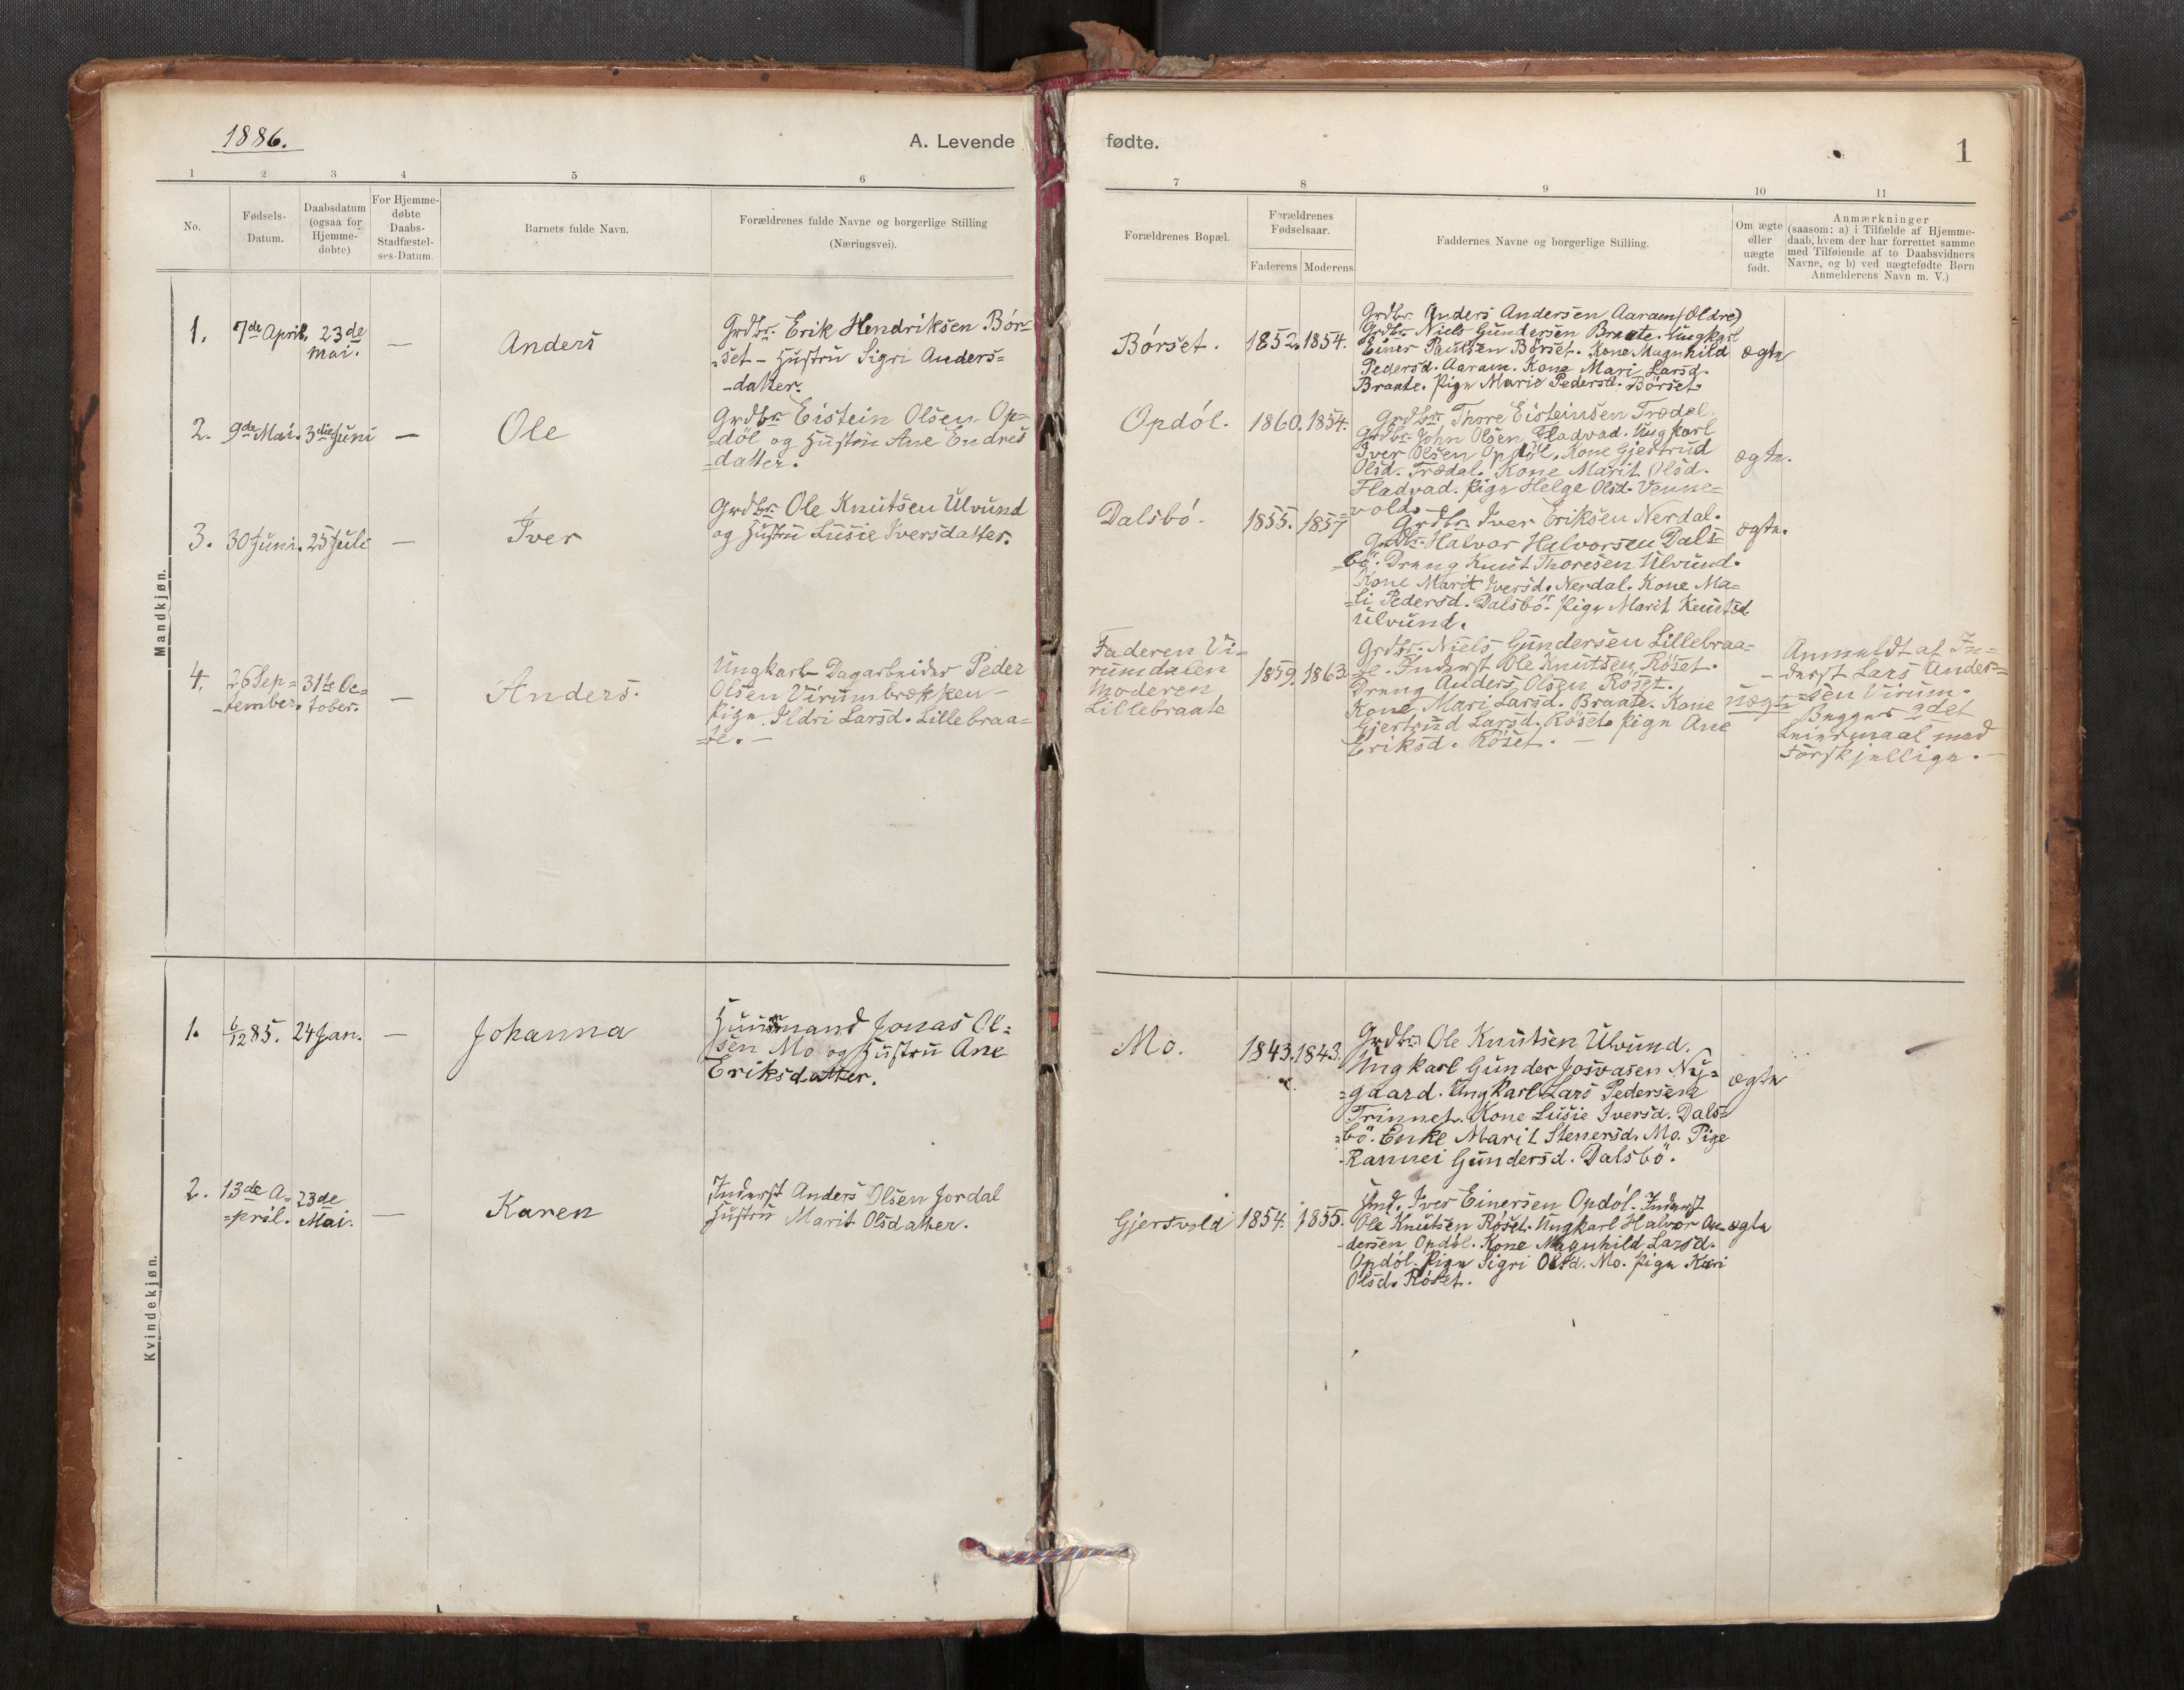 1886.
A. Levende
1 2 3 4 5 6
No.
Fødsels-
Datum.
Daabsdatum
(ogsaa for
Hjemme-
døbte)
For Hjemme-
døbte
Daabs-
Stadfæstel-
ses-Datum.
Barnets fulde Navn.
Forældrenes fulde Navne og borgerlige Stilling
(Næringsvei).
Mandkjøn.
1. 7de April. 23de
Mai. — Anders
Grdbr. Erik Hendriksen Bör-
"set - Hustru Sigri Anders=
-datter.
2. 9de Mai. 3die Juni — Ole
Grdbr. Eistein Olsen Op=
=döl og Hustru Ane Endres
=datter.
3. 30 Juni. 25 Juli — Iver
Grdbr. Ole Knutsen Ulvund
og Hustru Lusie Iversdatter.
4. 26 Sep=
-tember. 31te Oc=
tober. — Anders.
Ungkarl- Dagarbeider Peder
Olsen Virumbrækken -
Pige Ildri Larsd. Lillebraa=
=te. —
Kvindekjøn.
1. 6/12 85. 24 Jan. — Johanna
Huusmand Jonas Ol=
sen Mo og Hustru Ane
Eriksdatter.
2. 13de A=
=pril. 23de
Mai. — Karen
Inderst Anders Olsen Jordal
Hustru Marit Olsdatter.
fødte.
1
7 8 9 10 11
Forældrenes Bopæl.
Forældrenes
Fødselsaar.
Faderens Moderens
Faddernes Navne og borgerlige Stilling.
Om ægte
eller
uægte
født.
Anmærkninger
(saasom: a) i Tilfælde af Hjemme-
daab, hvem der har forrettet samme
med Tilføiende af to Daabsvidners
Navne, og b) ved uægtefødte Børn
Anmelderens Navn m. V.)
Börset. 1852. 1854.
Grdbr. Anders Andersen Aaram (Oldre)
Grdbr. Niels Gundersen Braate. Ungkarl
Einer Paulsen Börset. Kone Magnhild
Pedersd. Aaram. Kone Mari Larsd.
Braate. Pige Marie Pedersd. Börset.
ægte
Opdól. 1860. 1854.
Grdbr. Thore Eisteinsen Trædal.
Grdbr. John Olsen Fladvad. Ungkarl
Iver Olsen Opdöl. Kone Gjertrud
Olsd. Trædal. Kone Marit Olsd.
Fladvad. Pige Helge Olsd. Venne=
=vold. —
ægte.
Dalsbó. 1855. 1857
Grdbr. Iver Eriksen Nerdal.
Grdbr. Halvor Halvorsen Dals=
=bö. Dreng Knut Thoresen Ulvund.
Kone Marit Iversd. Nerdal. Kone Ma=
=li Pedersd. Dalsbö. Pige Marit Knutsd
Ulvund.
ægte.
Faderen Vi=
rumdalen
Moderen
Lillebraate
1859. 1863.
Grdbr. Niels Gundersen Lillebraa=
te. Inderst Ole Knutsen Röset.
Dreng Anders Olsen Röset.
Kone Mari Larsd. Braate. Kone
Gjertrud Larsd. Röset. Pige Ane
Eriksd. Röset. —
uægte
Anmeldt af In=
-derst Lars Ander=
=sen Virum.
Begges 2det
Leiermaal med
Forskjellige. —
Mo. 1843. 1843.
Grdbr. Ole Knutsen Ulvund.
Ungkarl Gunder Josvasen Ny=
=gaard. Ungkarl Lars Pedersen
Trinnet. Kone Lusie Iversd. Dals=
=bö. Enke Marit Stenersd. Mo. Pige
-Rannei Gundersd. Dalsbö.
ægte
Gjersvold 1854. 1855.
Iver Einersen Opdól. Inderst
Ole Knutsen Röset. Ungkarl Halvor An-
-dersen Opdöl. Kone Magnhild Larsd.
Opdöl. Pige Sigri Olsd. Mo. Pige Kari
Olsd. Röset.
ægte